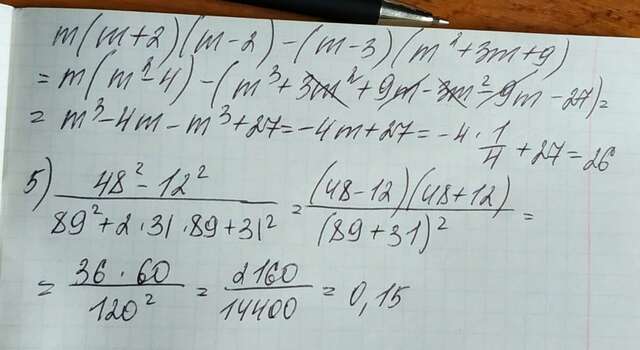 m(m+2)(m-2)-(m-3)(m²+3m+9)
=m(m²-4)-(m³+3m²+9m-3m²-9m-27)=
= m³-4m-m³+27=-4m+27=-4·1/4+27=26
5) (48²-12²)/(89²+2·31·89+31²) = ((48-12)(48+12))/((89+31)²) =
= (36·60)/(120²) = 2160/14400 = 0,15